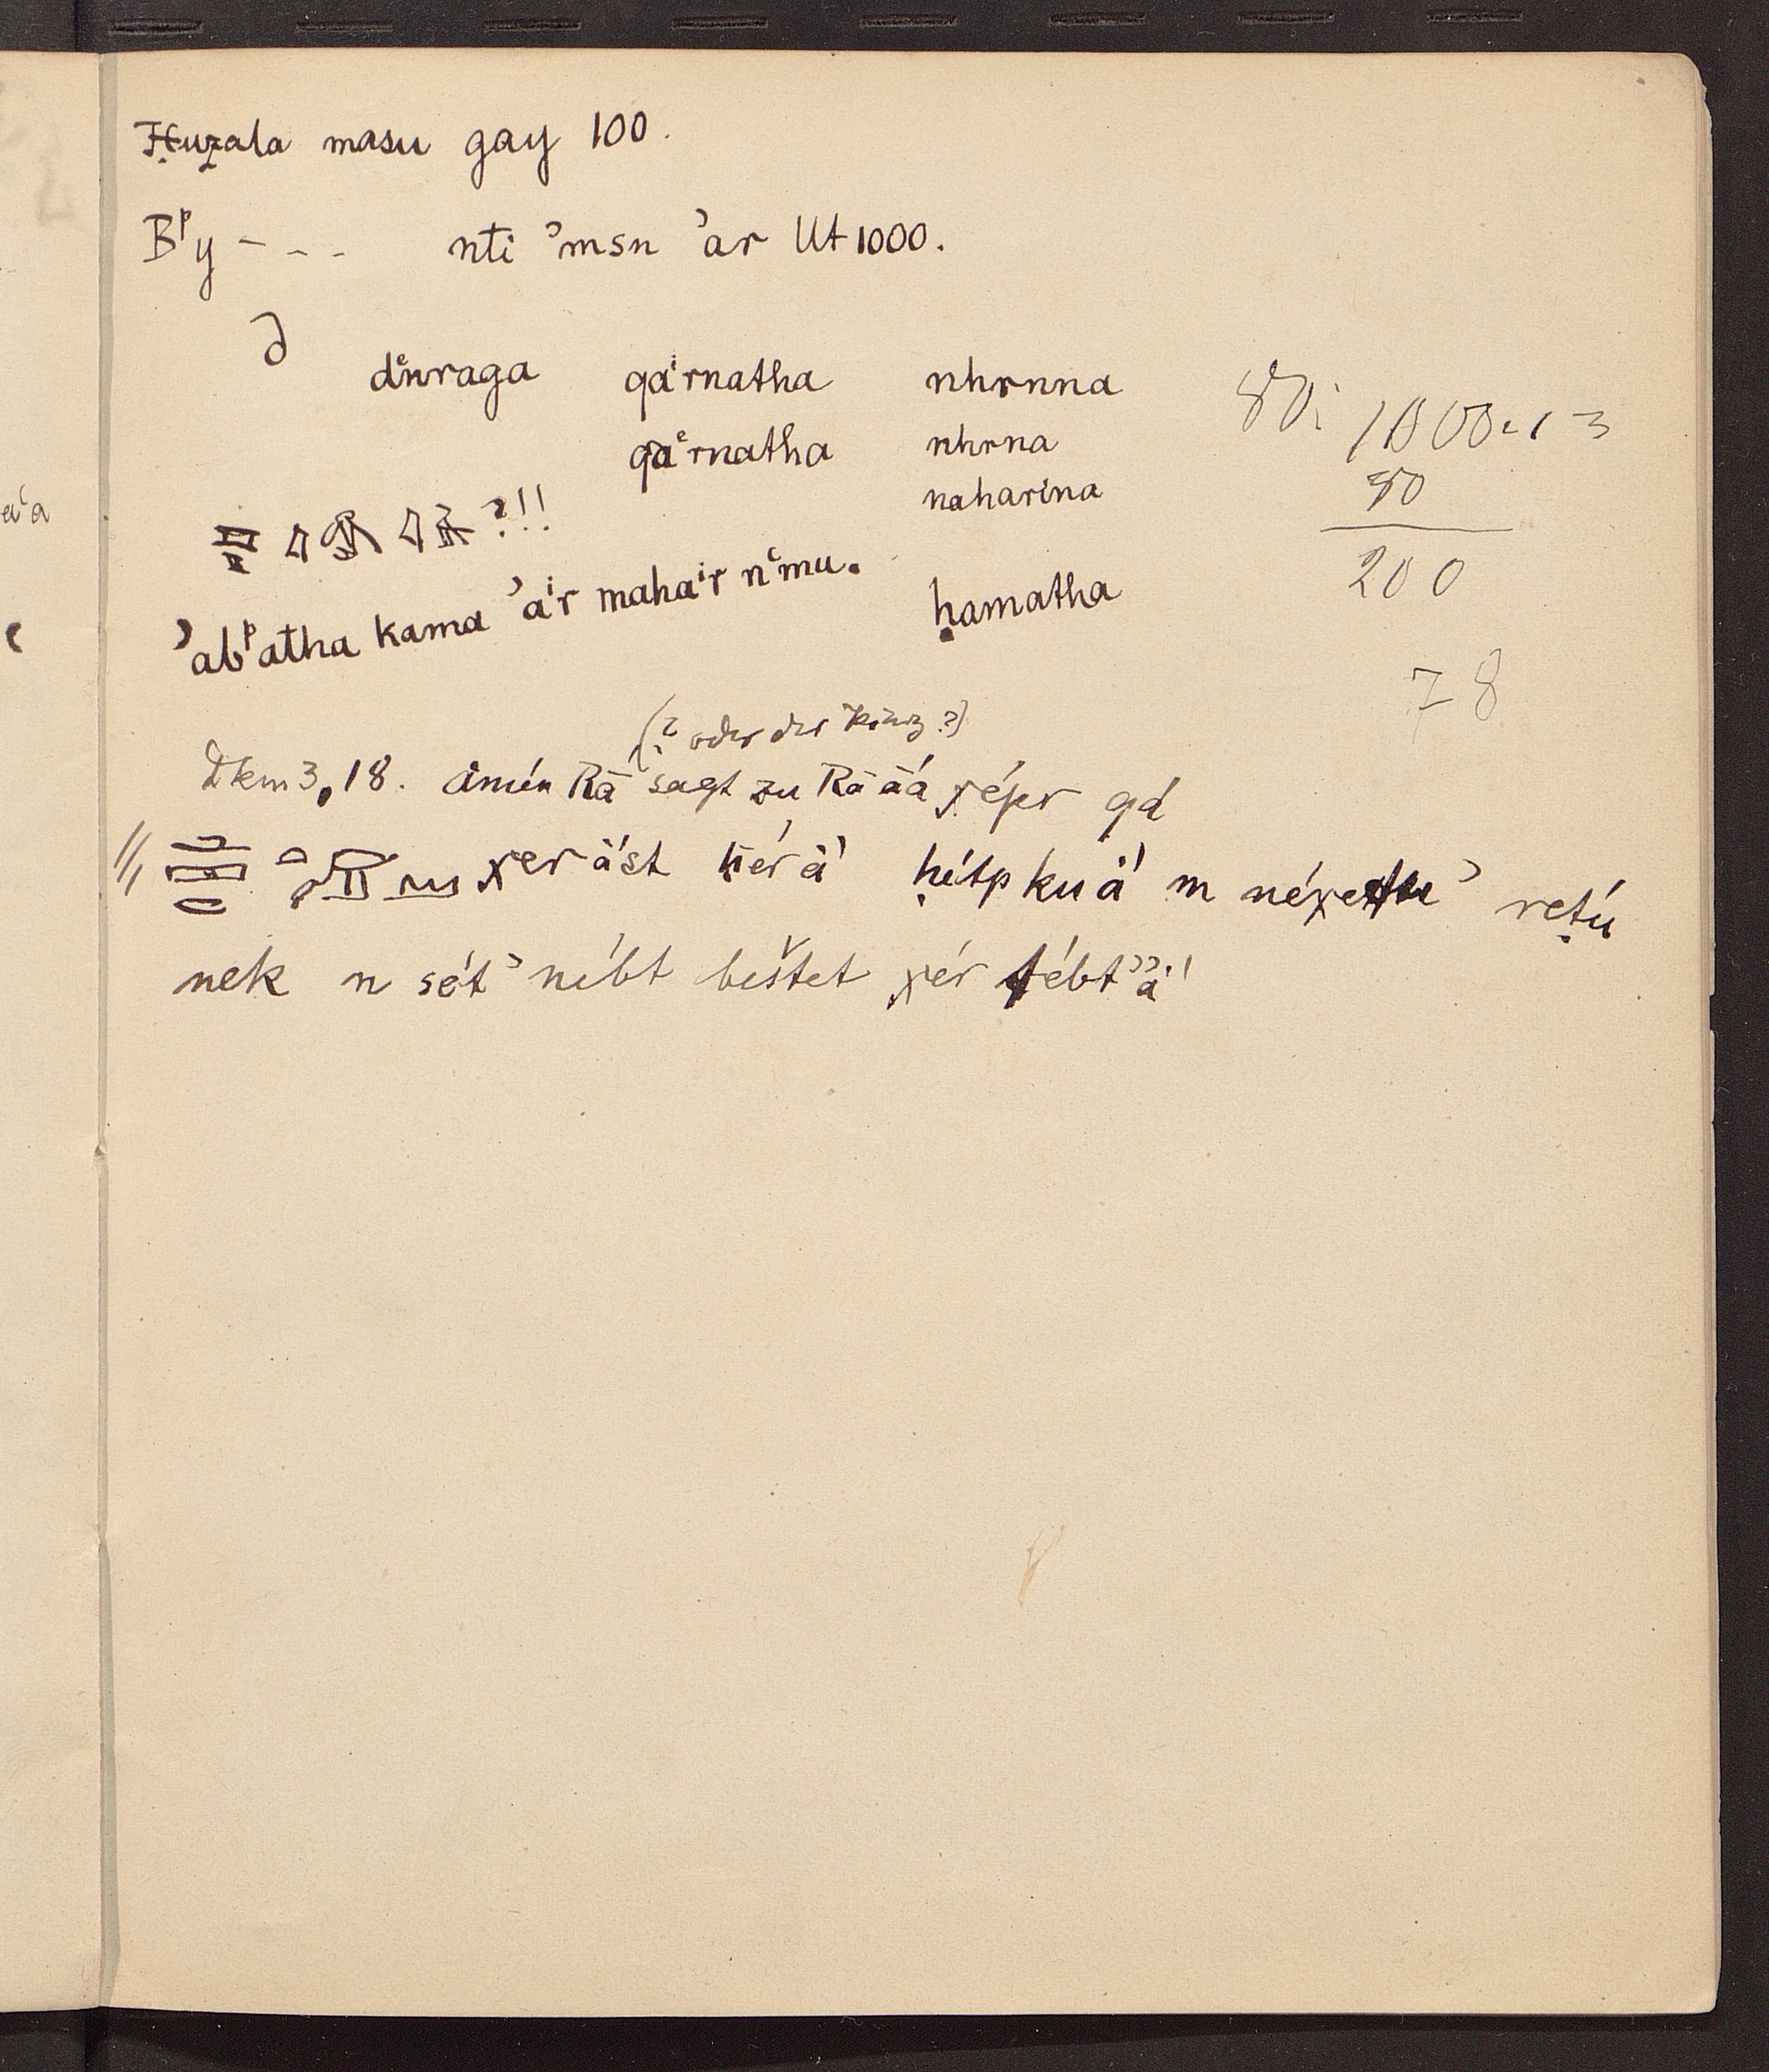 Ḥuzala masu gay 100.
Bᵖy - - - nti ʾmsn ʾar Ut 1000.
∂
dʿnraga qaʾrnatha nhrnna
qaʿrnatha nhrna
naharina
?!!
ʾabᵖatha kama ʾaʾr mahaʾr nʿmu.
ḥamatha
80: 1000 = 13
80
200
78
(? oder der König?)
Dkm 3,18. åmén Rā sagt zu Rā āá χépr qd
χer ȧ́st ḥérȧ́ ḥétpkuȧ́ m néχettuʾ reṭú
nek n sétʾ nébt beštet χér tébtʾʾȧ́
aʿa